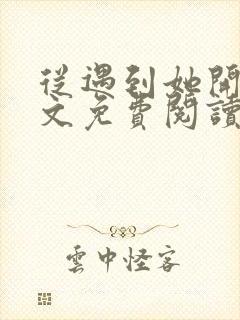 從遇到她開
文免費閱讀
雲中怪客